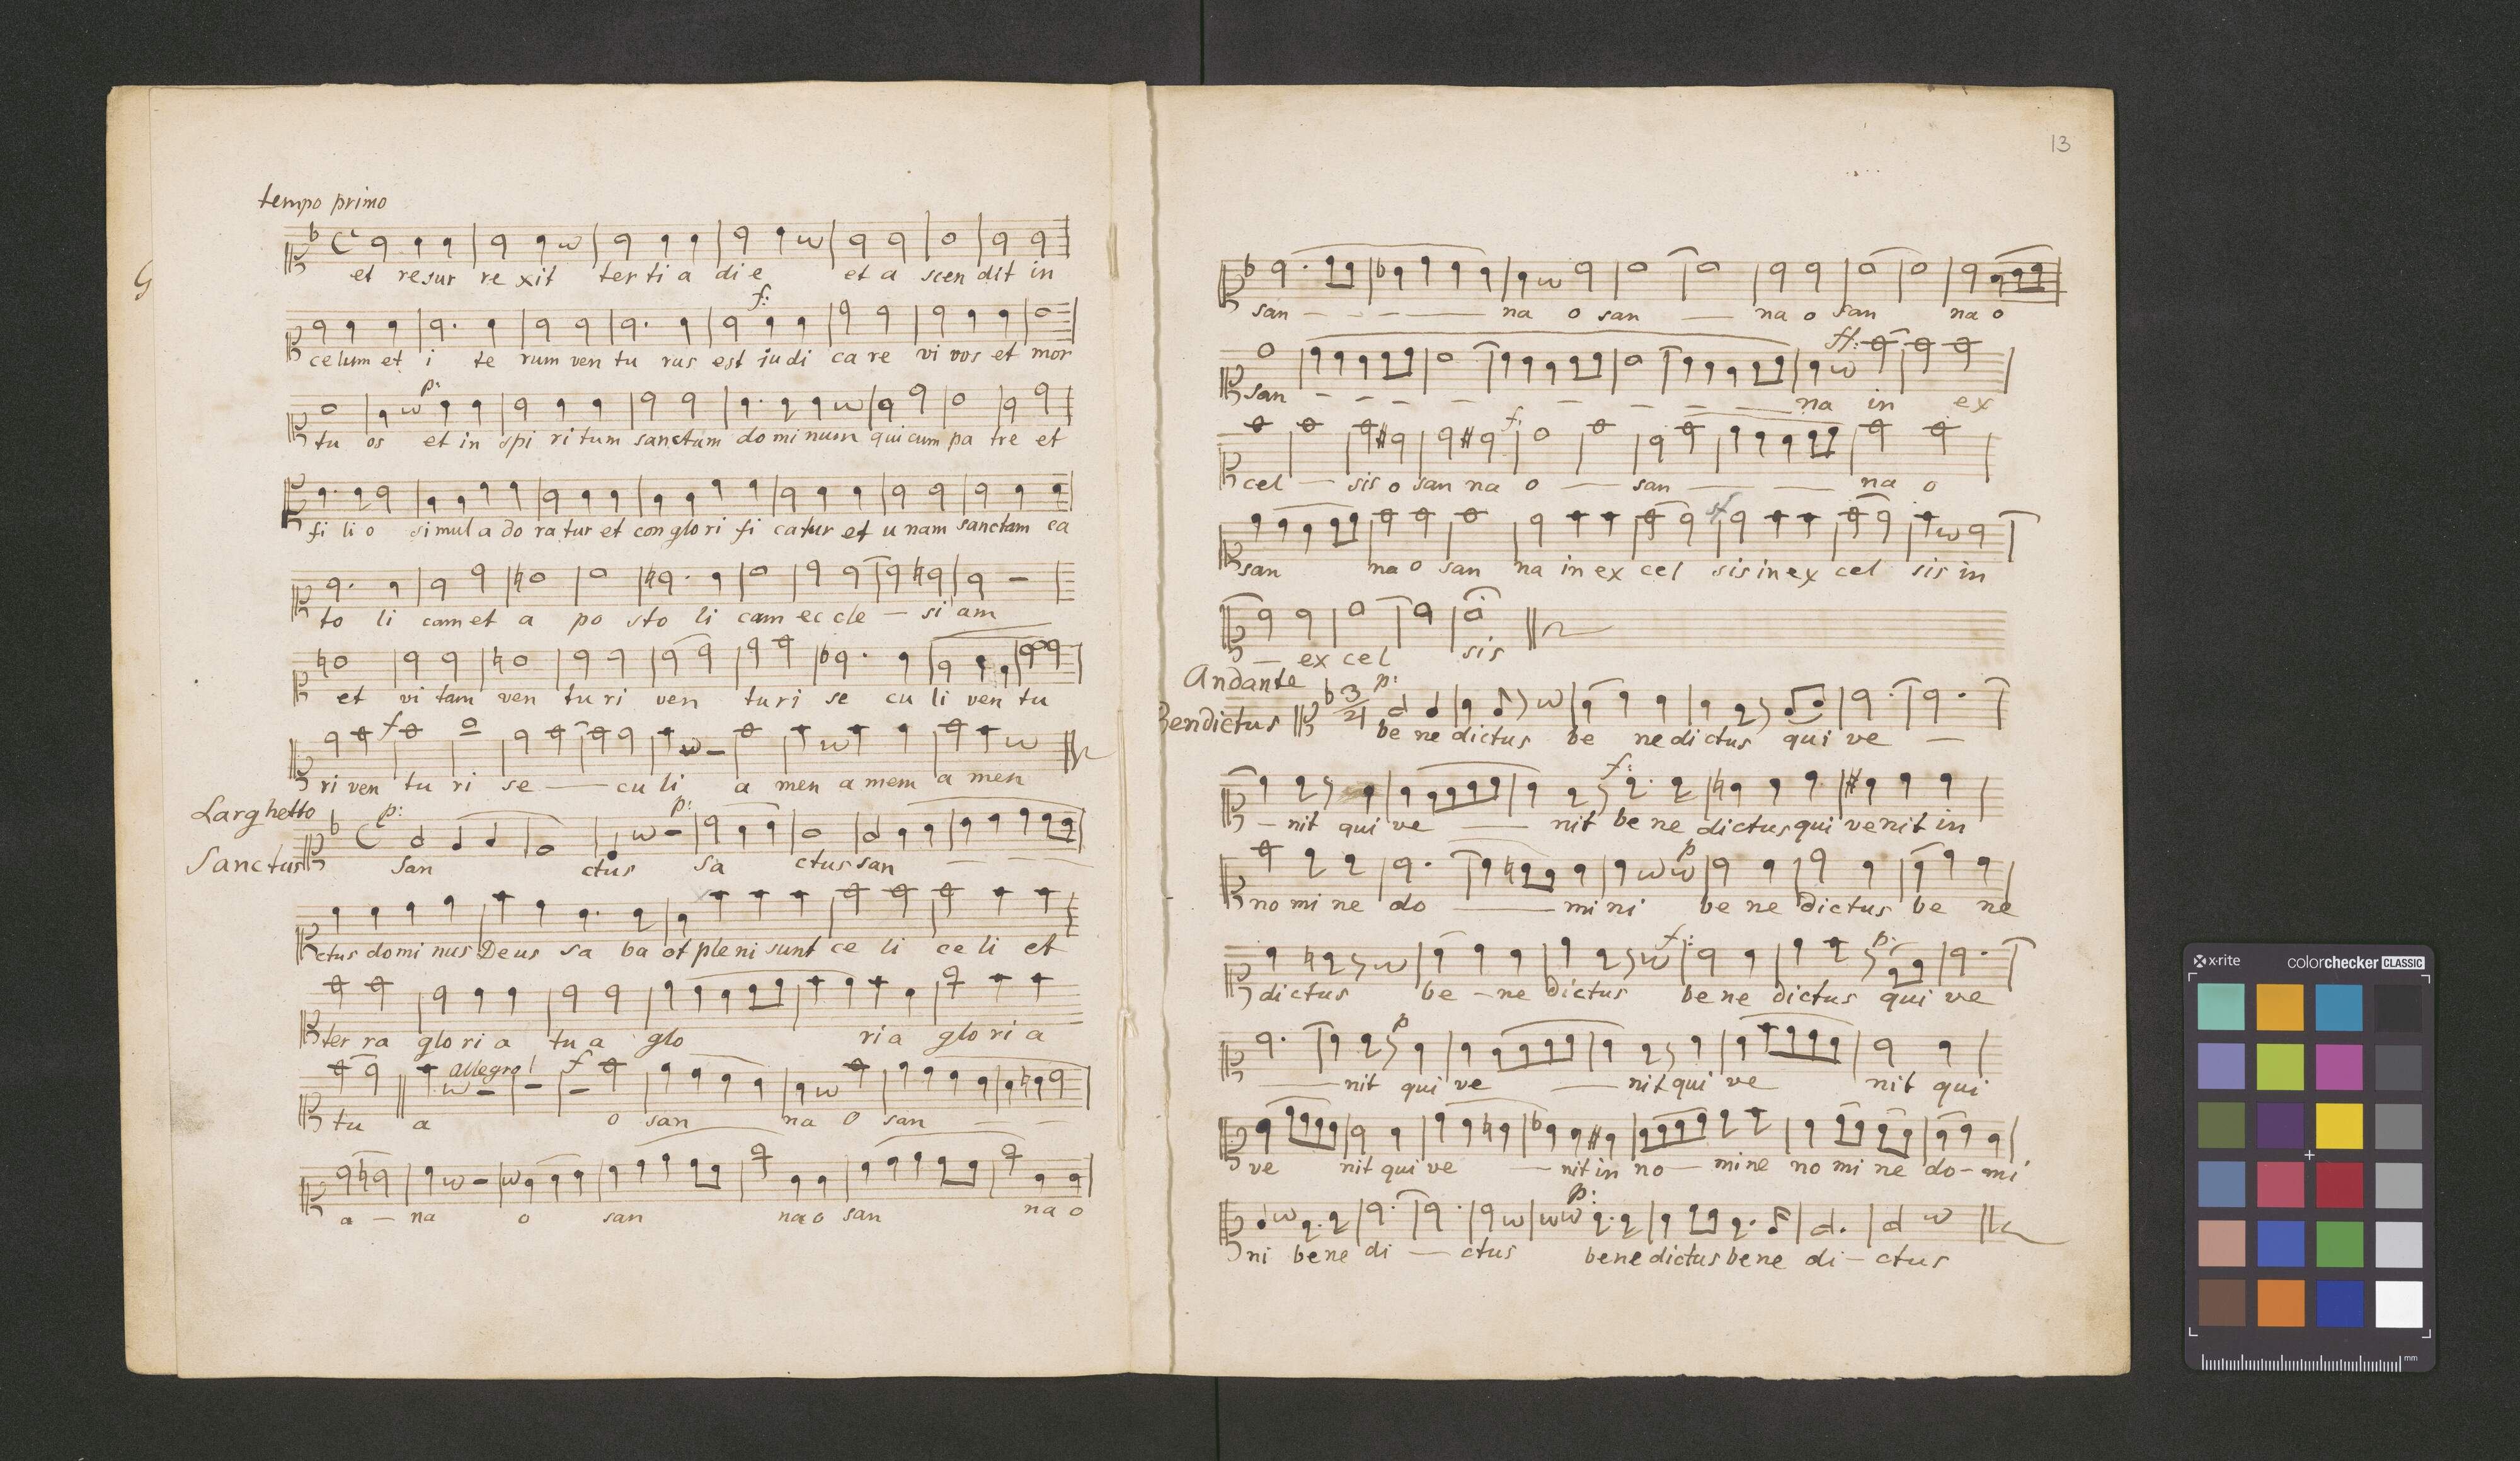 tempo primo
et resur re xit ter ti a di e et a scen dit in
f:
celum et i te rum ven tu rus est iu di ca re vi vos et mor
p:
tu os et in spi ri tum sanctum do mi num qui cum pa tre et
fi li o simul a do ra tur et con glo ri fi catur et u nam sanctam ca
to li cam et a po sto li cam ec cle — si am
et vi tam ven tu ri ven tu ri se cu li ven tu
f
ri ven tu ri se — cu li a men a mem a men
Larghetto p: p:
Sanctus san ctus sa ctus san
ctus domi nus Deus sa ba ot pleni sunt ce li ce li et
ter ra glo ri a tu a glo ri a glo ri a
allegro f
tu a o san na o san
a — na o san na o san na o
13
san — — — — na o san — na o san na o
ff:
san — — — — — — — — na in ex
f:
cel — sis o san na o — san — — na o
sf
san na o san na in ex cel sis in ex cel sis in
— ex cel sis
Andante 3/4 p:
Bendictus be ne dictus be ne dictus qui ve —
f:
— nit qui ve — nit be ne dictus qui venit in
p
no mi ne do — mi ni be ne dictus be ne
f: p:
dictus be — ne dictus be ne dictus qui ve
p
— nit qui ve — nit qui ve nit qui
ve nit qui ve — nit in no — mi ne no mi ne do — mi
p:
ni bene di — ctus bene dictus bene di — ctus
x-rite colorchecker CLASSIC
mm